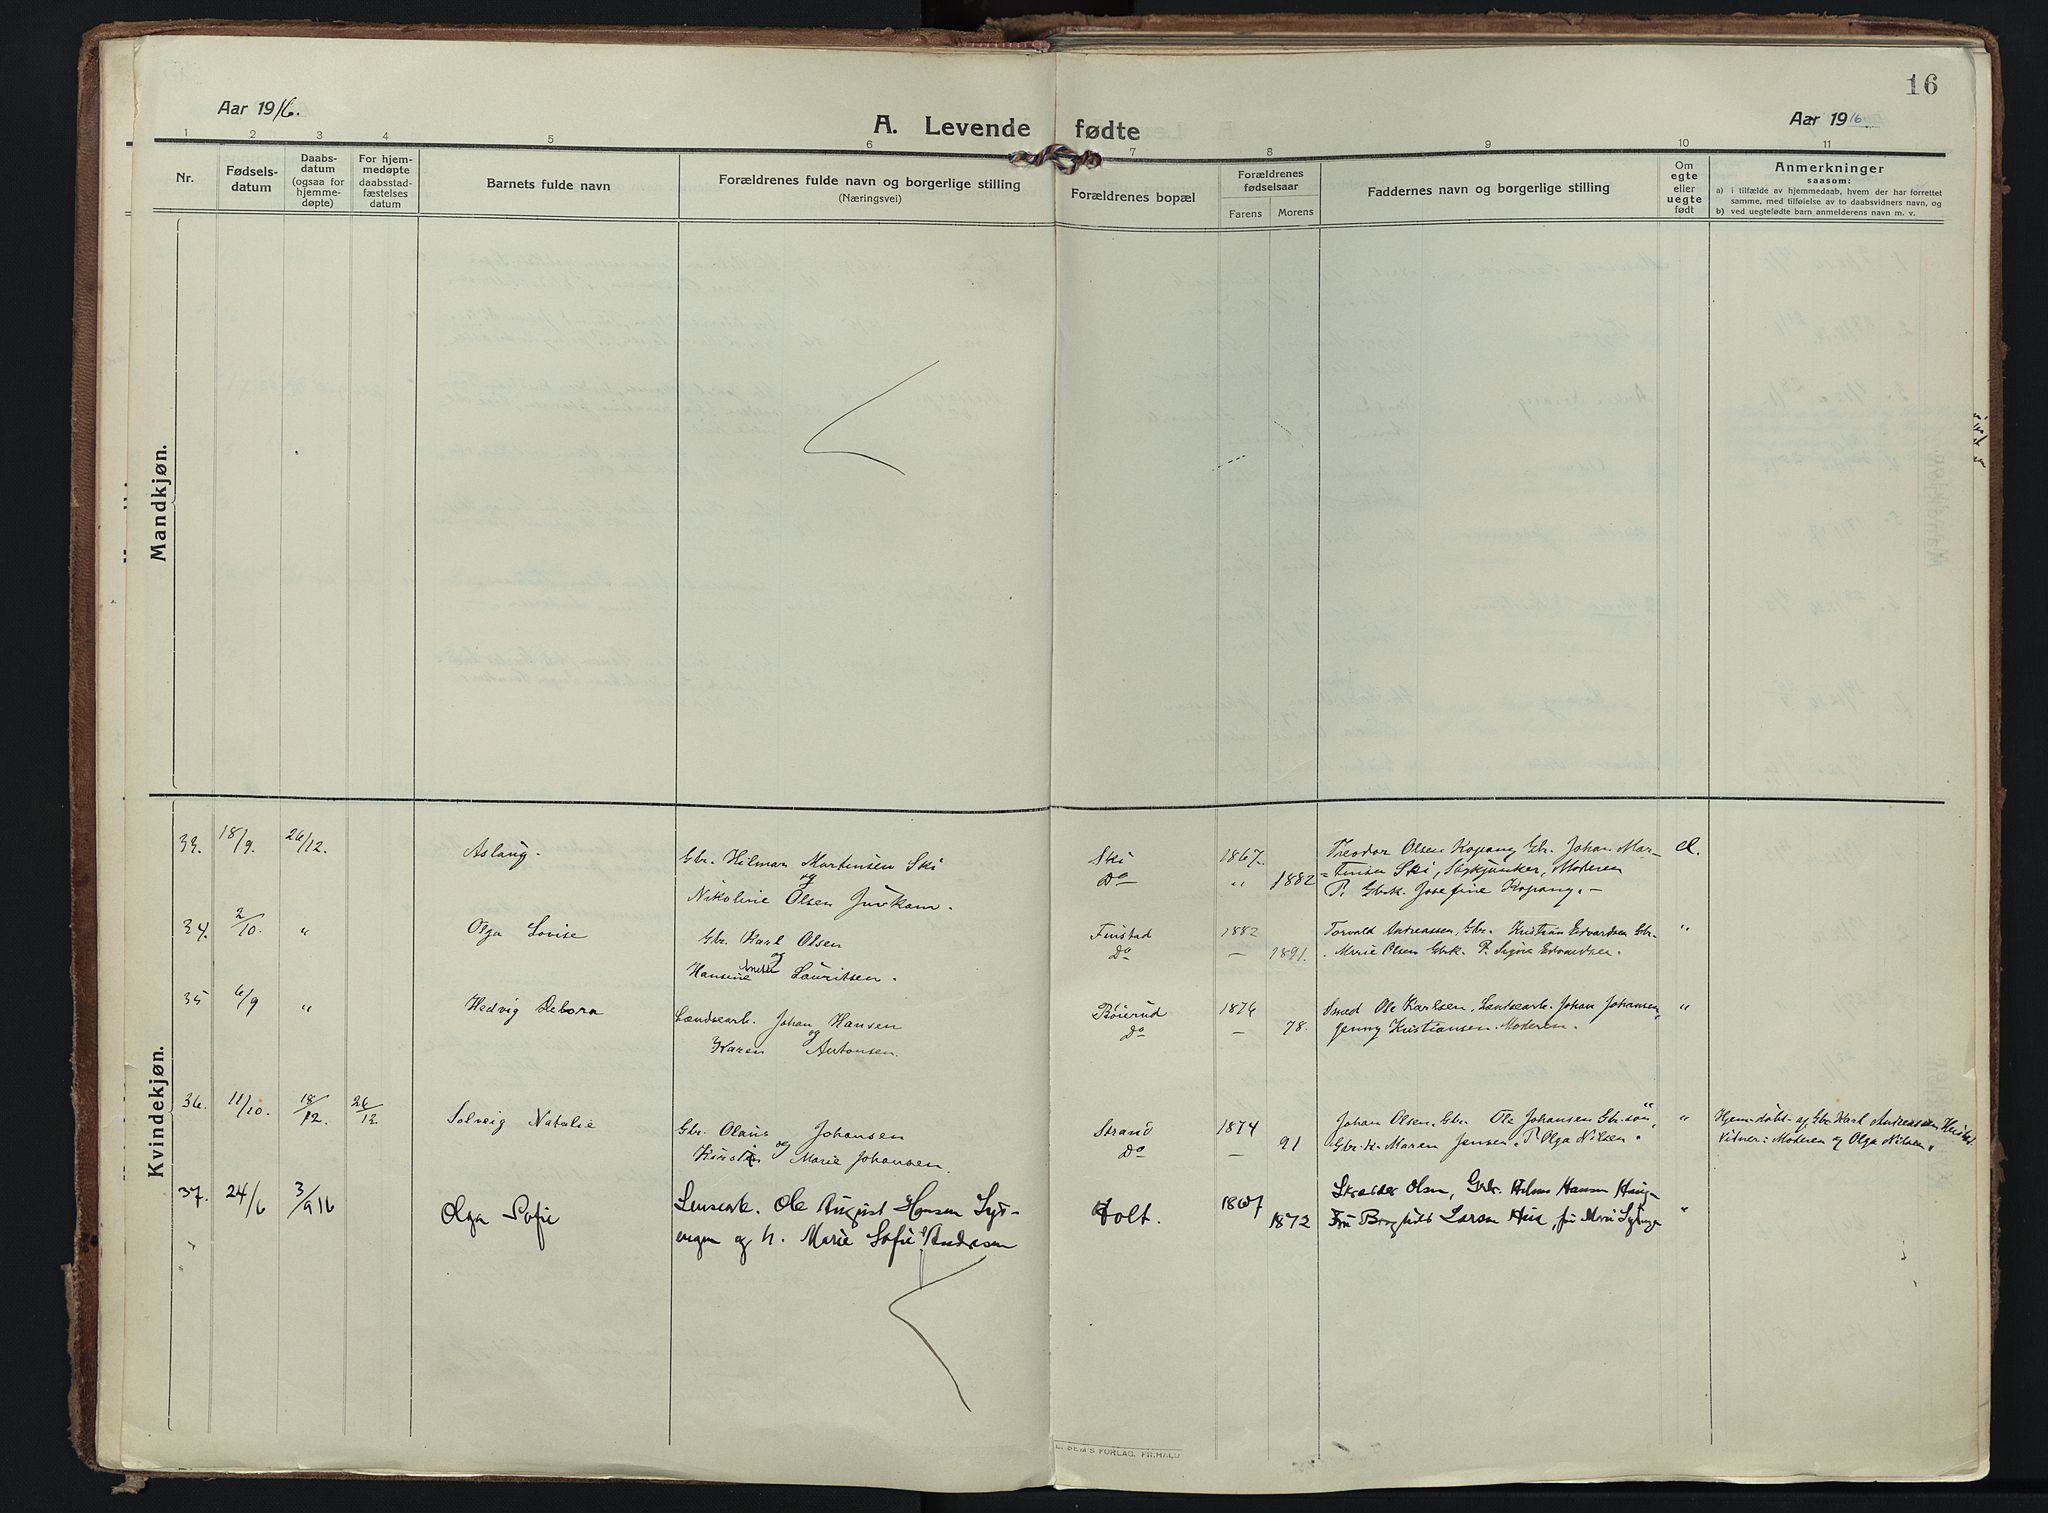 16
Aar 1916.
A. Levende fødte
Aar 1916
1 2 3 4 5 6 7 8 9 10 11
Nr.
Fødsels-
datum
Daabs-
datum
(ogsaa for
hjemme-
døpte)
For hjem-
medøpte
daabsstad-
fæstelses
datum
Barnets fulde navn
Forældrenes fulde navn og borgerlige stilling
(Næringsvei)
Forældrenes bopæl
Forældrenes
fødselsaar
Farens Morens
Faddernes navn og borgerlige stilling
Om
egte
eller
uegte
født
Anmerkninger
saasom:
a) i tilfælde av hjemmedaab, hvem der har forrettet
samme, med tilføielse av to daabsvidners navn, og
b) ved uegtefødte barn anmelderens navn m. v.
Mandkjøn.
Kvindekjøn.
33. 18/9. 26/12. Aslaug. Gbr. Hilmar Martinsen Ski
og
Nikoline Olsen
Ski 1867.
Do " 1882
Theodor Olsen Kopang Gbr. Johan Mar-
tinsen Ski, Moderen
P. Gbrk. Josefine Kopang. -
34. 2/10. " Olga Lovise Gbr. Karl Olsen
og
Hansine Lauritsen.
Finstad 1882
Do — 1891.
Torvald Andreassen, Gbr. Kristian Edvardsen Gbr. "
Marie Olsen Gbrk. P. Signe Edvardsen.
35 6/9 " Hedvig Debora Johan Hansen
og
Karen Antonsen.
Bøierud 1876
Do — 78.
Ole Karlsen, Johan Johansen, "
Jenny Kristiansen. Moderen.
36. 11/10. 18/12. 26/12 Solveig Natalie Gbr. Olaus Johansen
og
Marie Johansen.
Strand 1874
Do — 91
Johan Olsen, Gbr. Ole Johansen Gbr.søn, "
Gbr.k. Maren Jensen. P. Olga Nilsen.
Hjemdøbt af Gbr. Karl Andreassen
Vidner: Moderen og Olga Nilsen.
37. 24/6 3/9 16 Olga Sofie Ole August Hansen
og h. Marie Sofie Andersen
Holt. 1867
1872
Olsen, Gbr. Hansen "
Fru Borghild Larsen
E. SEM'S FORLAG, FR.HALD